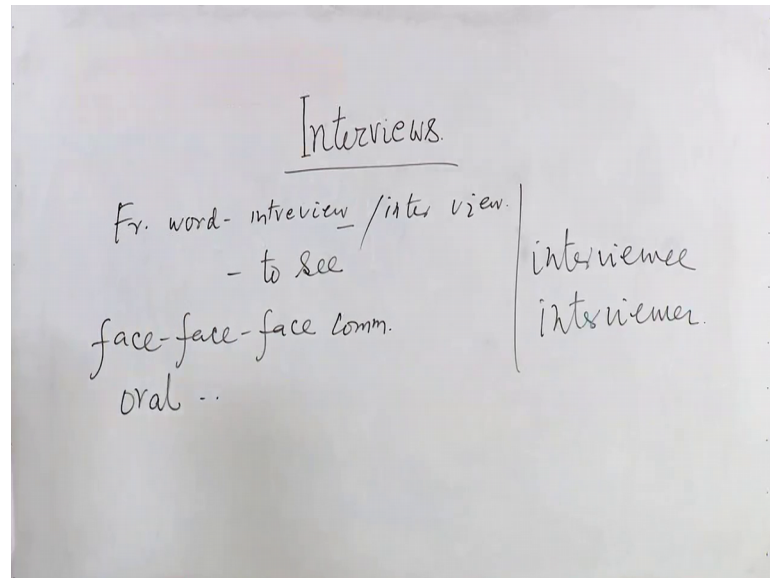 Interviews.
Fr. word- intreview / inter view.
- to see
face-face-face Comm.
oral ..
interviewee
interviewer.